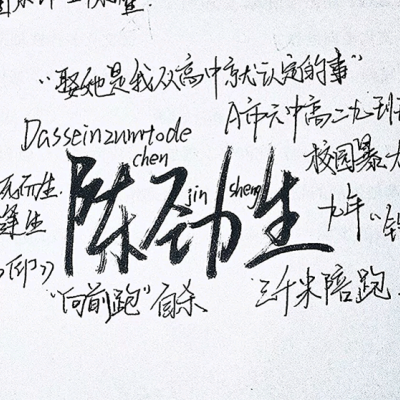 "娶她是我从高中就认定的事"
A市六中高二九班
Dasseinzumtode
校园暴
chen
jin sheng
陈劲生
死而生
九年
印》
"向前跑"自杀
三千米陪跑